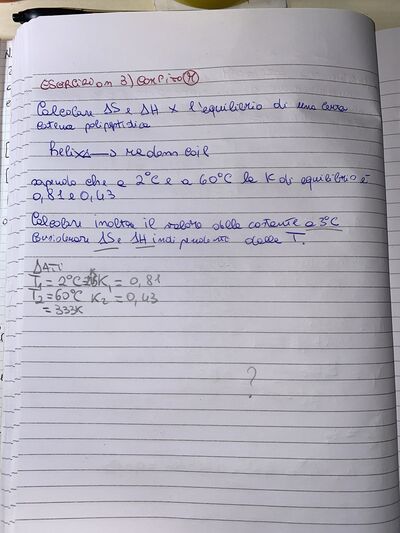 ESERCIZIO n 3) COMPITO (M)
Calcolare ΔS e ΔH x l'equilibrio di una certa
catena polipeptidica
helix ⟶ random coil
sapendo che a 2°C e a 60°C la K di equilibrio è
0,81 e 0,43
Calcolare inoltre il valore della costante a 3°C
Considerare ΔS e ΔH indipendenti dalla T.
DATI
T₁ = 2°C K₁ = 0,81
T₂ = 60°C K₂ = 0,43
= 333K
?